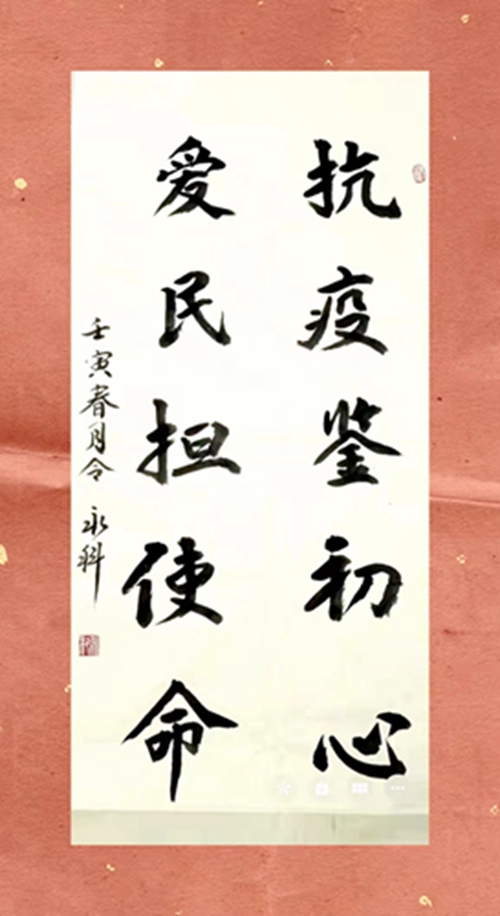 抗疫鉴初心
爱民担使命
壬寅春月令 永科